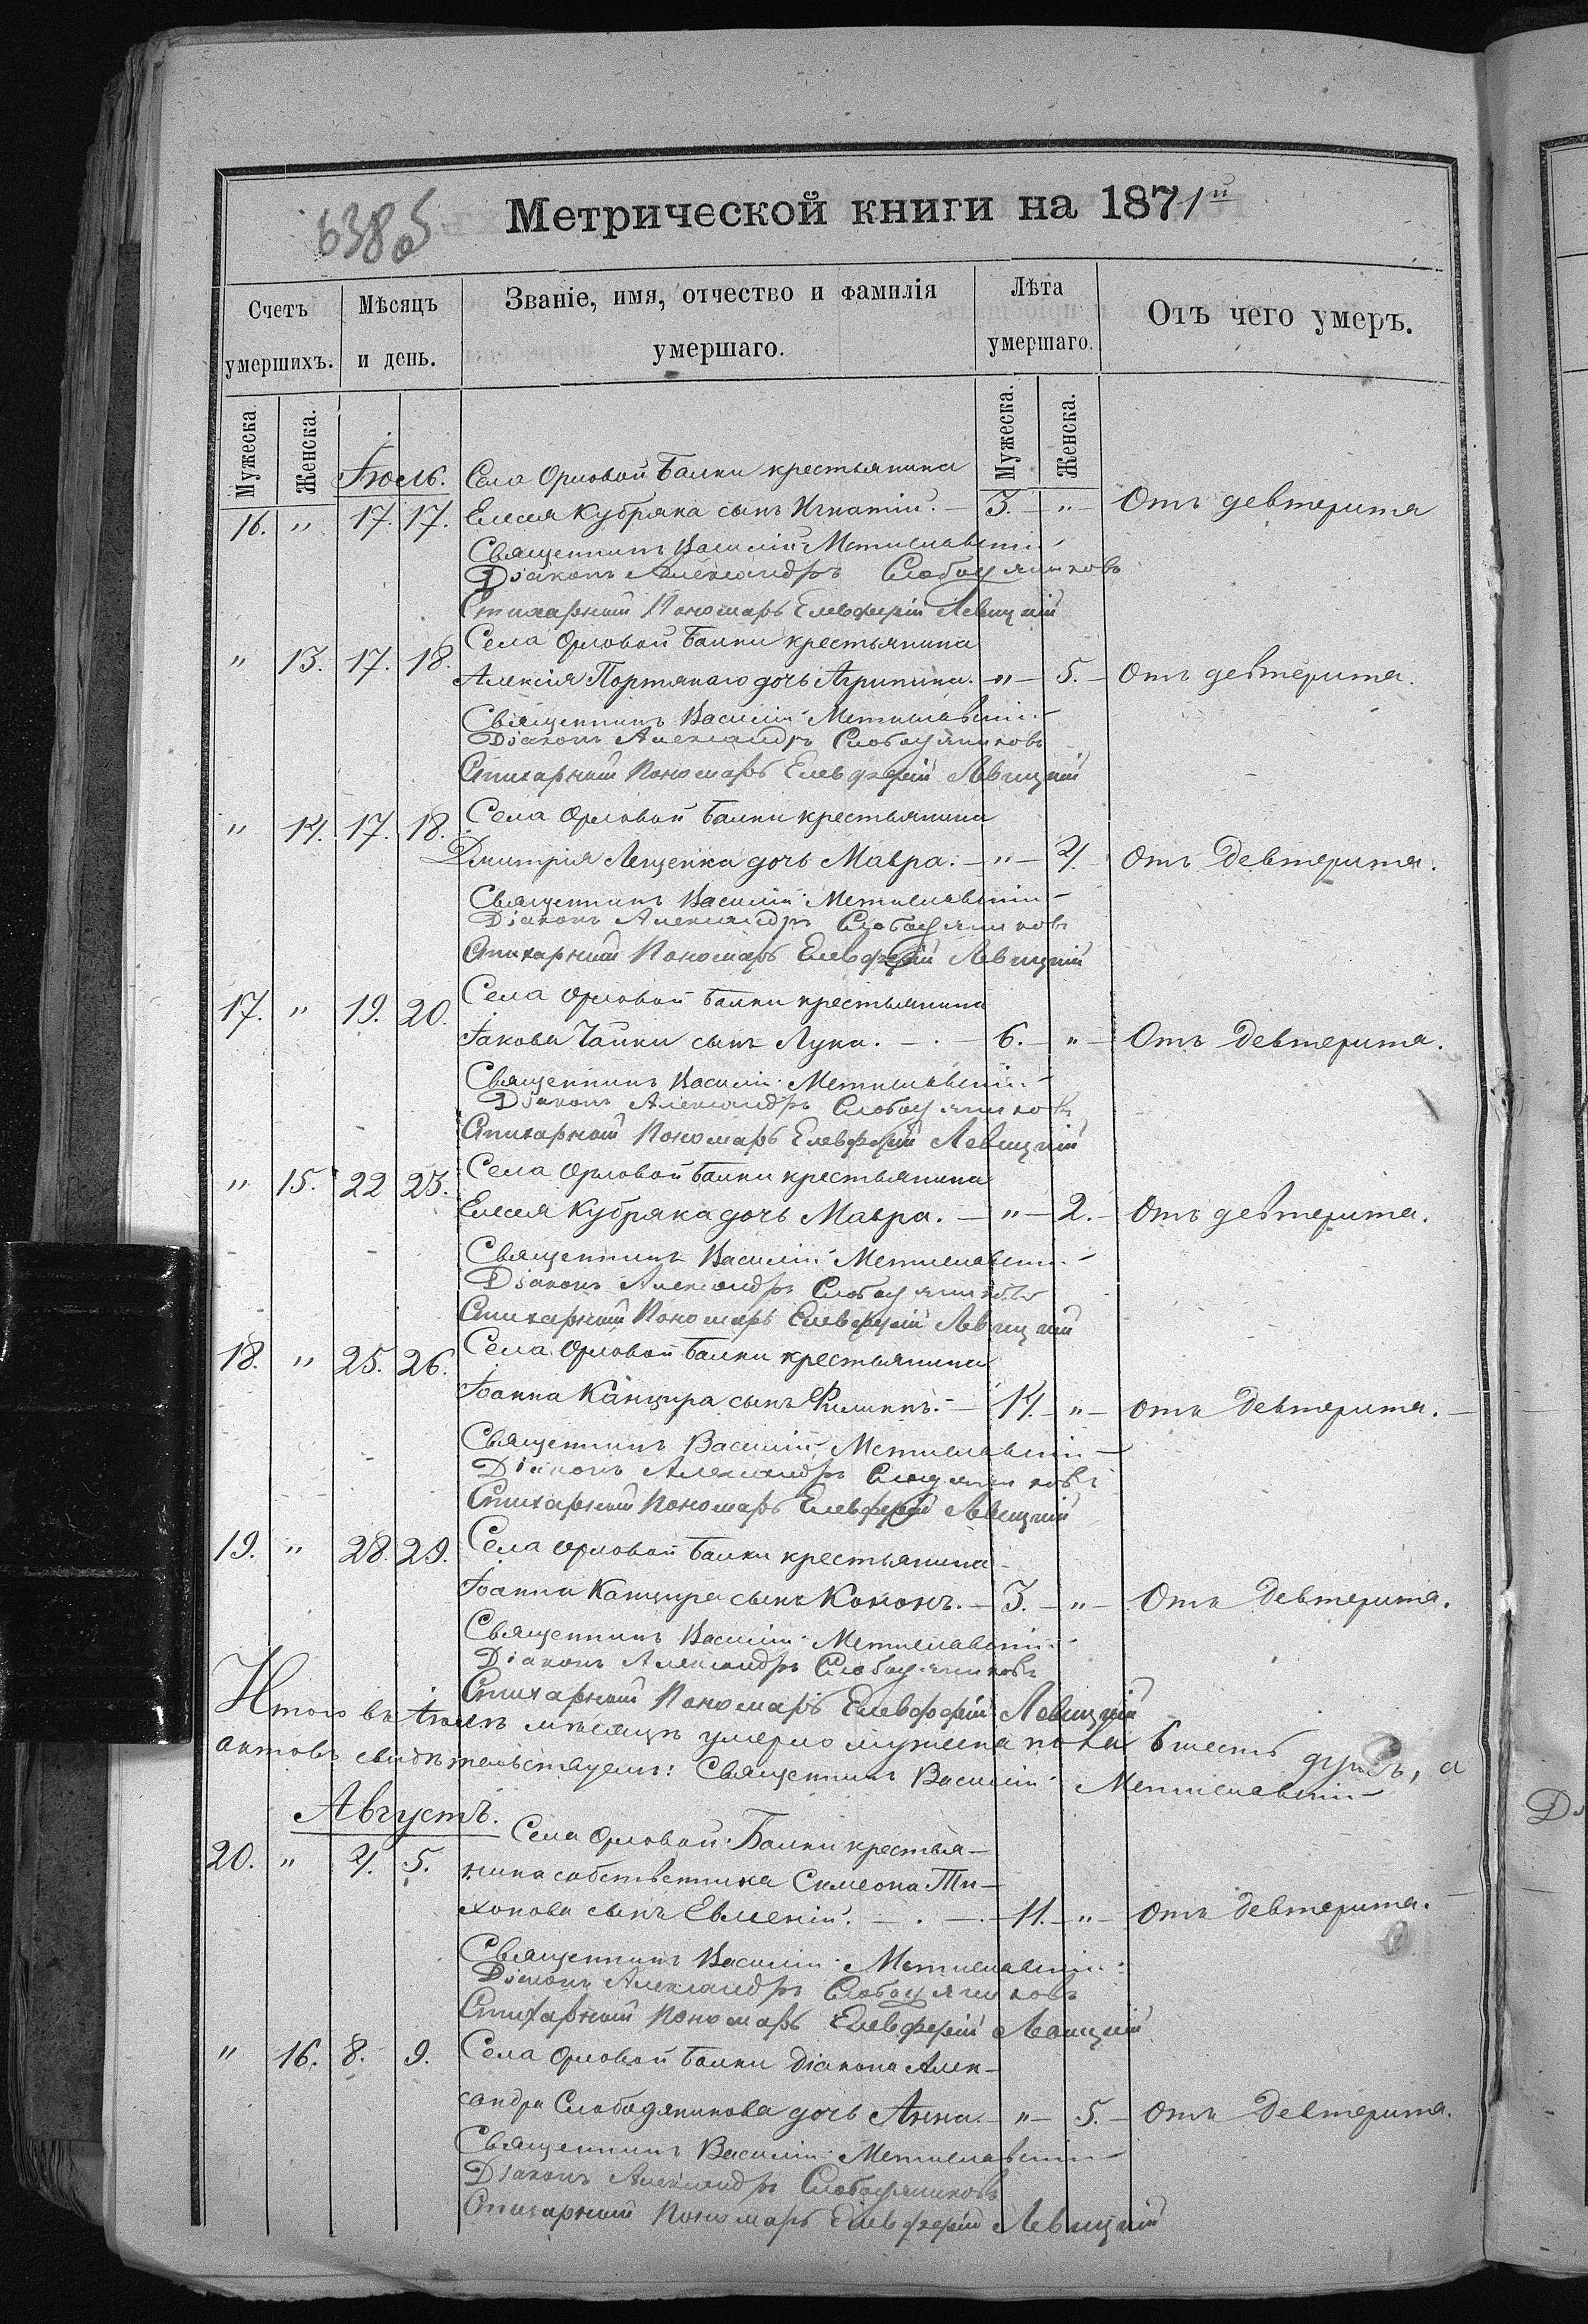 Метрической книги на 1871й
Счетъ умершихъ.
Мѣсяцъ и день.
Званіе, имя, отчество и фамилія умершаго.
Лѣта умершаго.
Отъ чего умеръ.
Мужеска.
Женска.
Мужеска.
Женска.
Іюль. Села Орловой Балки крестьянина
16. " 17. 17. Елисея Кубряка сынъ Игнатій. — 3. — " — Отъ девтерита
Священникъ Василій Мстиславскій
Діаконъ Александръ Слободяниковъ
Стихарный Пономарь Елевферій Левицкій
Села Орловой Балки крестьянина
" 13. 17. 18. Алексія Портянаго дочь Агрипина. — " — 5. — Отъ девтерита.
Священникъ Василій Мстиславскій
Діаконъ Александръ Слободяниковъ
Стихарный Пономарь Елевферій Левицкій
" 14. 17. 18. Села Орловой Балки крестьянина
Дмитрія Лещенка дочь Мавра. — " — 4. Отъ девтерита.
Священникъ Василій Мстиславскій
Діаконъ Александръ Слободяниковъ
Стихарный Пономарь Елевферій Левицкій
17. " 19. 20. Села Орловой Балки крестьянина
Іакова Чайки сынъ Лука. — . — 6. — " — Отъ девтерита.
Священникъ Василій Мстиславскій
Діаконъ Александръ Слободяниковъ
Стихарный Пономарь Елевферій Левицкій
" 15. 22 23. Села Орловой Балки крестьянина
Елисея Кубряка дочь Мавра. — " — 2. — Отъ девтерита.
Священникъ Василій Мстиславскій
Діаконъ Александръ Слободяниковъ
Стихарный Пономарь Елевферій Левицкій
18. " 25. 26. Села Орловой Балки крестьянина
Іоанна Канцира сынъ Филиппъ. — 14. — " — отъ девтерита. —
Священникъ Василій Мстиславскій
Діаконъ Александръ
Стихарный Пономарь Елевферій Левицкій
19. " 28. 29. Села Орловой Балки крестьянина
Іоанна Канцира сынъ Кононъ. — 3. — " — Отъ девтерита.
Священникъ Василій Мстиславскій
Діаконъ Александръ Слободяниковъ
Стихарный Пономарь Елевферій Левицкій
Итого въ Іюлѣ мѣсяцѣ умерло мужеска пола 6 шесть душъ, а
актовъ свидѣтельствуемъ: Священникъ Василій Мстиславскій
Августъ.
Села Орловой Балки крестья-
20. " 4. 5. нина собственника Симеона Ти-
хонова сынъ Евменій. — . — . — 11. — " — Отъ девтерита.
Священникъ Василій Мстиславскій
Діаконъ Александръ Слободяниковъ
Стихарный Пономарь Елевферій Левицкій
" 16. 8. 9. Села Орловой Балки діакона Алек-
сандра Слободяникова дочь Анна. — " — 5. — Отъ девтерита.
Священникъ Василій Мстиславскій
Діаконъ Александръ Слободяниковъ
Стихарный Пономарь Елевферій Левицкій